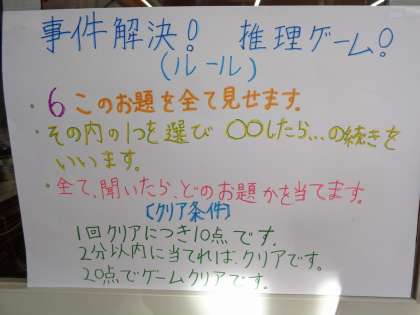 事件解決! 推理ゲーム!
(ルール)
・6このお題を全て見せます。
・その内の1つを選び 〇〇したら...の続きを
いいます。
・全て、聞いたら、どのお題かを当てます。
[クリア条件]
1回クリアにつき10点です。
2分以内に当てれば、クリアです。
20点でゲームクリアです。